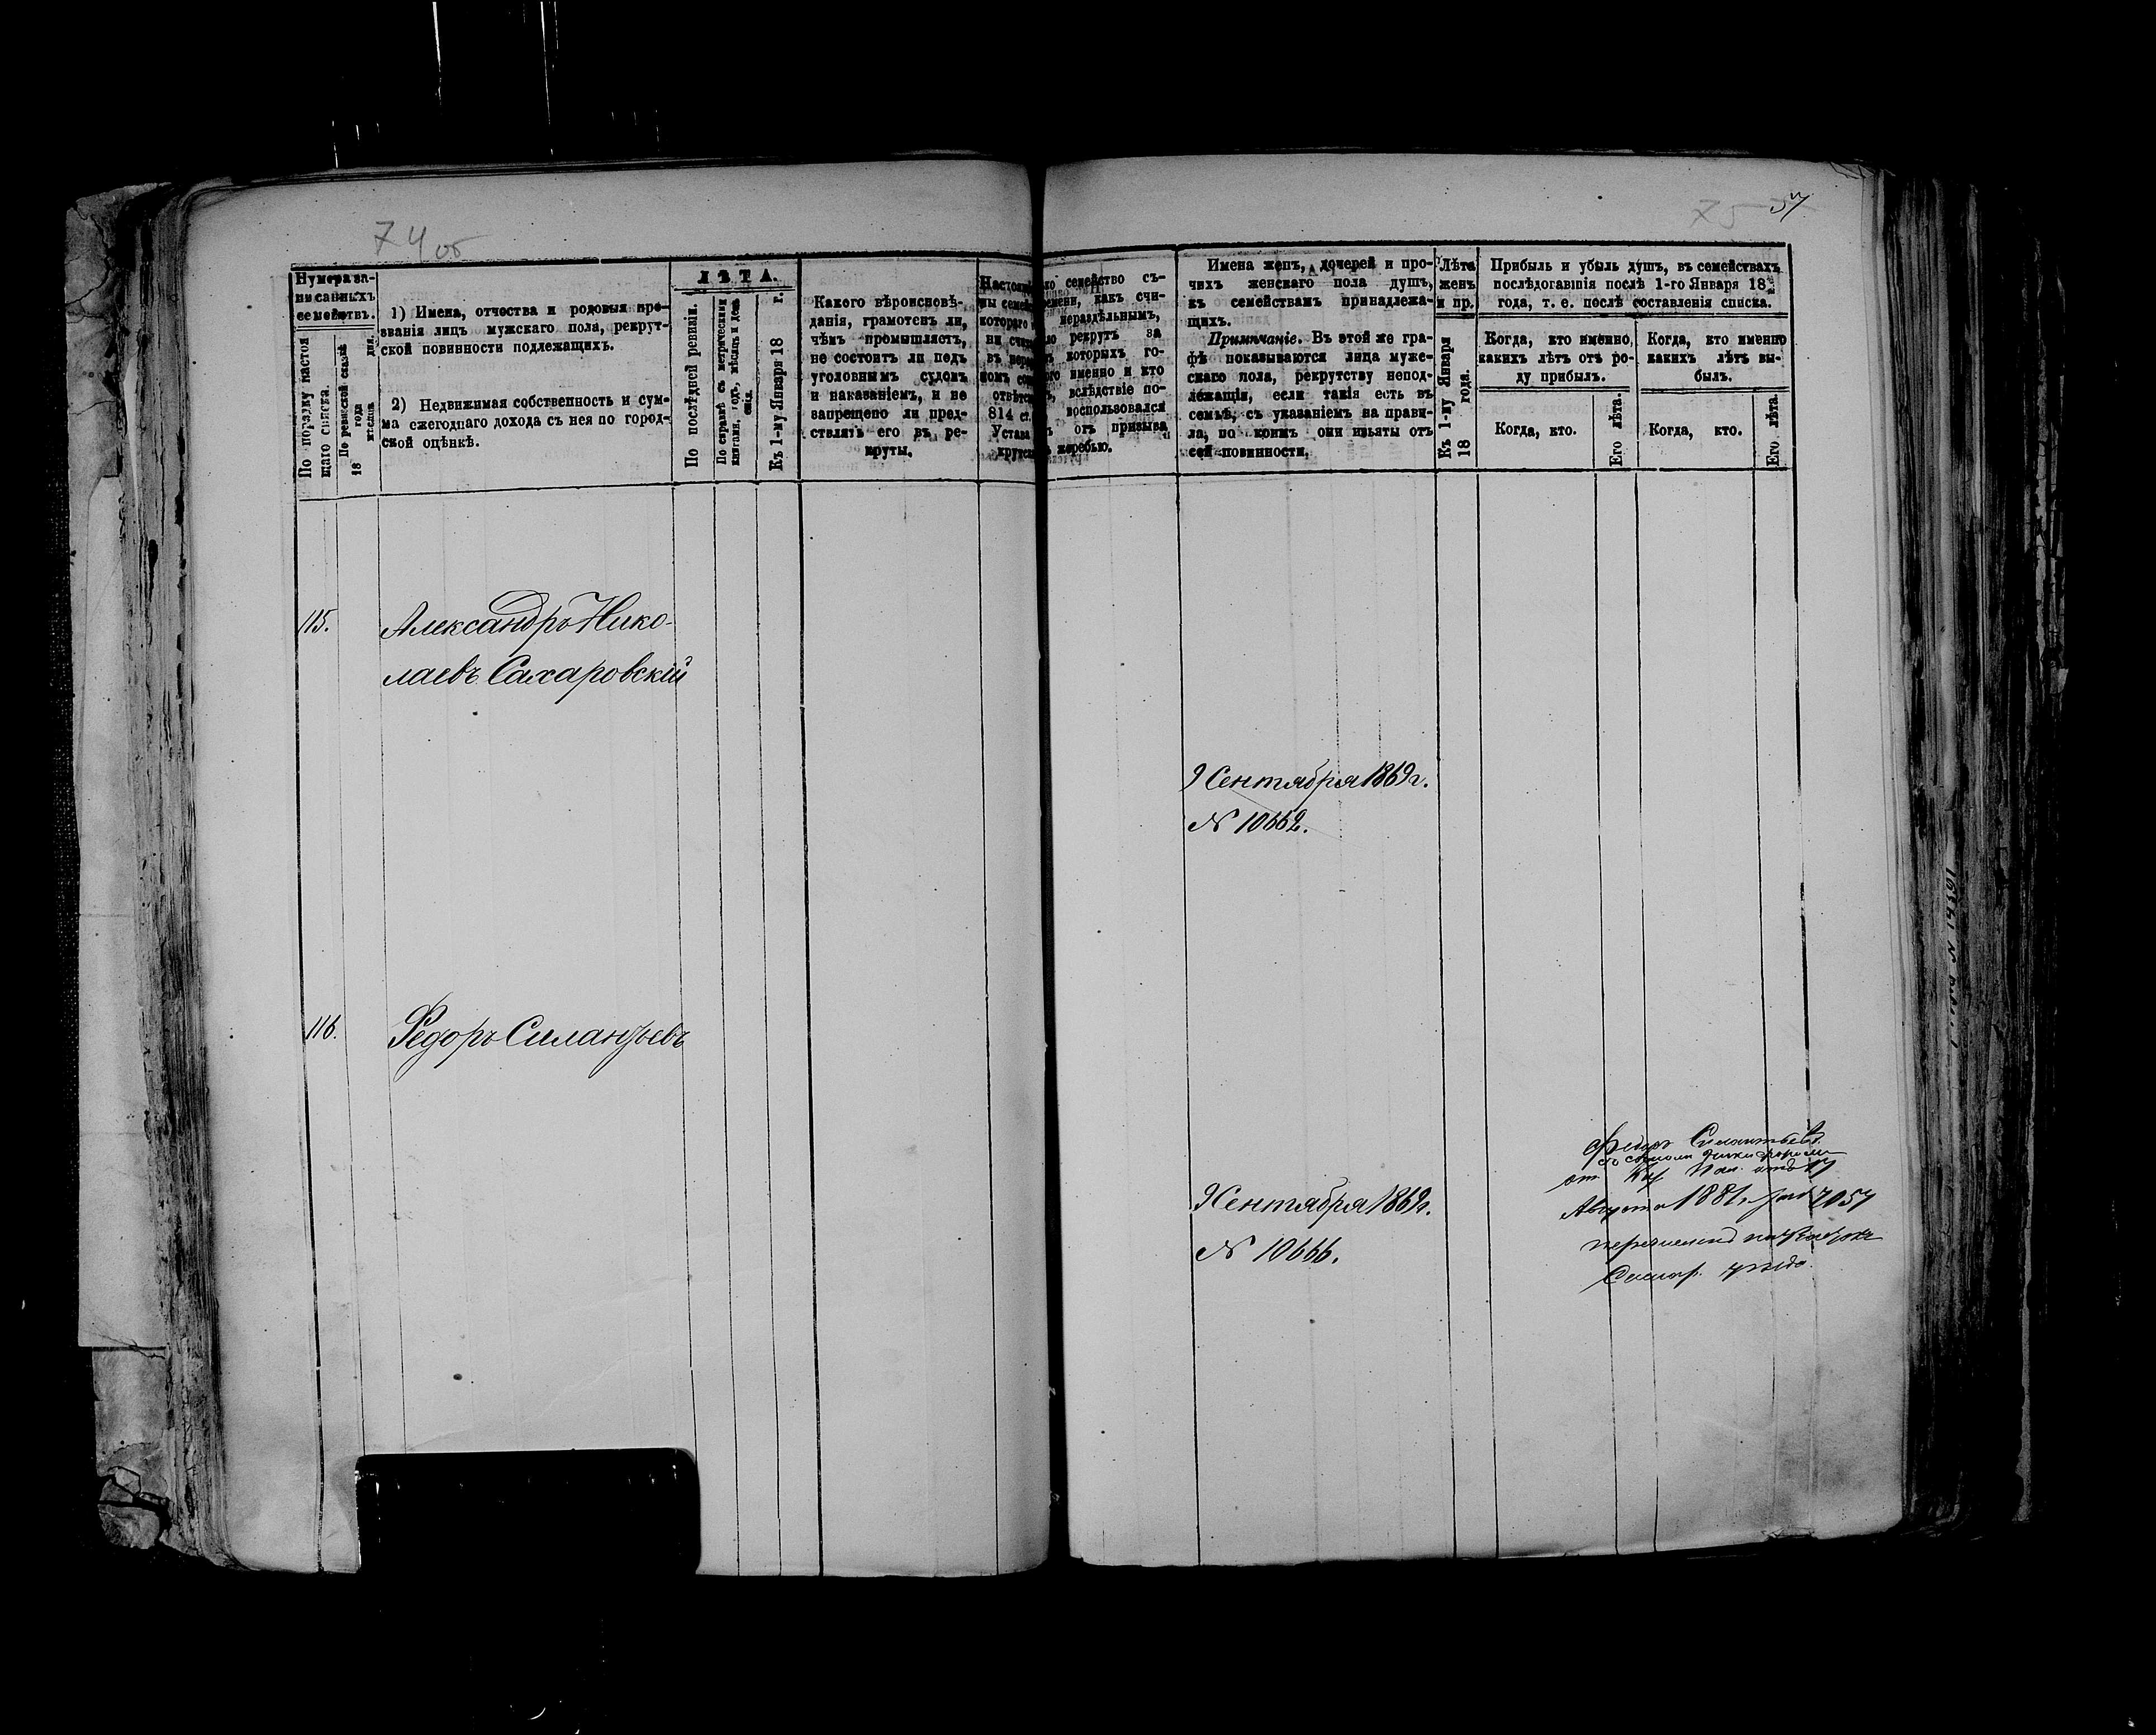 74об
75
57
Нумера за-
писанныхъ
семействъ.
По порядку настоя
щаго списка.
По ревизской сказкѣ
18 года
мѣсяца дня.
1) Имена, отчества и родовыя про-
званія лицъ мужскаго пола, рекрут-
ской повинности подлежащихъ.
2) Недвижимая собственность и сум-
ма ежегоднаго дохода съ нея по город-
ской оцѣнкѣ.
ЛѢТА.
По послѣдней ревизіи.
По справкѣ съ метрическими
книгами, годъ, мѣсяцъ и день
Къ 1-му Января 18 г.
Какого вѣроисповѣ-
данія, грамотенъ ли,
чѣмъ промышляетъ,
не состоитъ ли подъ
уголовнымъ судомъ
и наказаніемъ, и не
запрещено ли пред-
ставлять его въ ре-
круты.
семейство съ-
какъ счи-
нераздѣльнымъ,
рекрутъ за
которыхъ го-
именно и кто
вслѣдствіе по-
814 ст. воспользовался
Устава отъ призыва
жеребью.
Имена женъ, дочерей и про-
чихъ женскаго пола душъ,
къ семействамъ принадлежа-
щихъ.
Примѣчаніе. Въ этой же гра-
фѣ показываются лица муже-
скаго пола, рекрутству непод-
лежащія, если такія есть въ
семьѣ, съ указаніемъ на прави-
ла, по коимъ они изъяты отъ
сей повинности.
Лѣта
женъ
и пр.
Къ 1-му Января
18 года.
Прибыль и убыль душъ, въ семействахъ
послѣдовавшія послѣ 1-го Января 18
года, т. е. послѣ составленія списка.
Когда, кто именно,
какихъ лѣтъ отъ ро-
ду прибылъ.
Когда, кто.
Его лѣта.
Когда, кто именно
какихъ лѣтъ вы-
былъ.
Когда, кто.
Его лѣта.
115.
Александръ Нико-
лаевъ Сахаровскій
9 Сентября 1869 г.
№ 10662.
116.
Федоръ Силантьевъ
9 Сентября 1869 г.
№ 10666.
Федоръ Силантьевъ
Августа 1881 г. за № 7057
Самар. уѣзда.